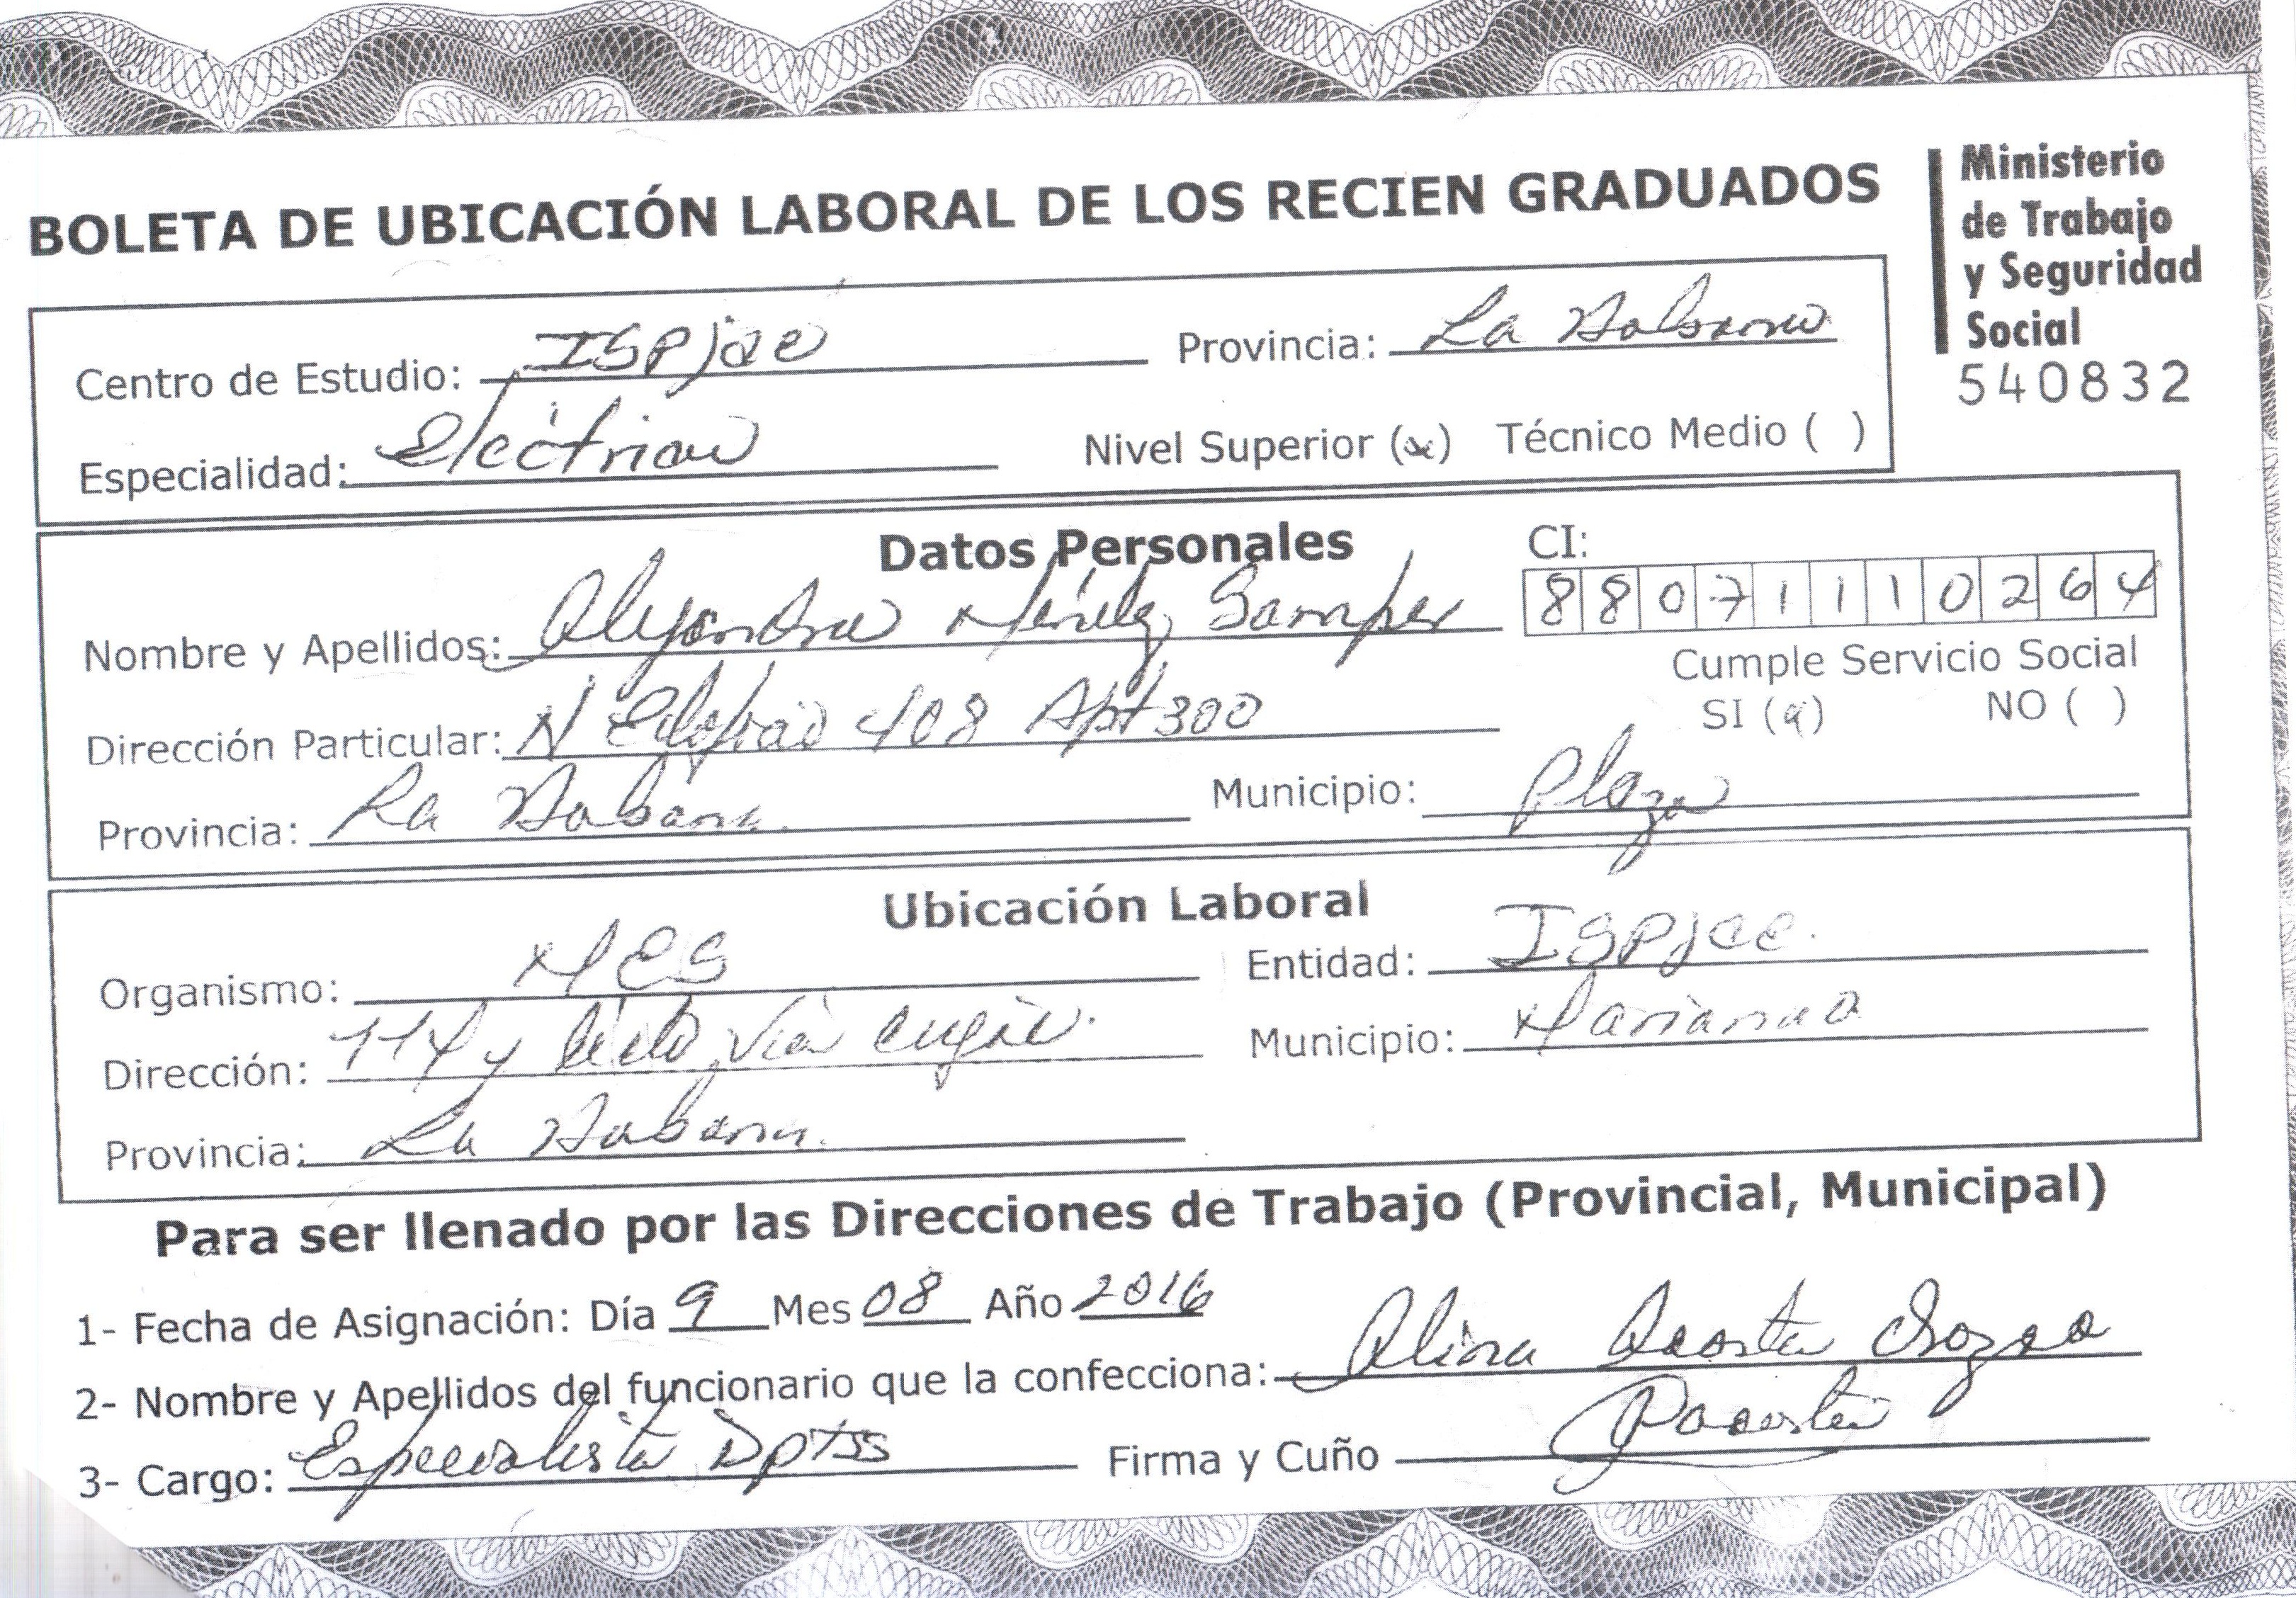 BOLETA DE UBICACIÓN LABORAL DE LOS RECIEN GRADUADOS
Ministerio
de Trabajo
y Seguridad
Social
540832
Centro de Estudio: ISPjae Provincia: La Habana
Especialidad: Eléctrica Nivel Superior (x) Técnico Medio ( )
Datos Personales CI:
88071110264
Nombre y Apellidos: Alejandro Samper
Cumple Servicio Social
SI (x) NO ( )
Dirección Particular: N 408 Apt 300
Provincia: La Habana. Municipio: Plaza
Ubicación Laboral
Organismo: MES Entidad: ISPjae.
Dirección: 114 y Municipio: Marianao
Provincia: La Habana.
Para ser llenado por las Direcciones de Trabajo (Provincial, Municipal)
1- Fecha de Asignación: Día 9 Mes 08 Año 2016
2- Nombre y Apellidos del funcionario que la confecciona: Alina Acosta
3- Cargo: Especialista DPTSS Firma y Cuño